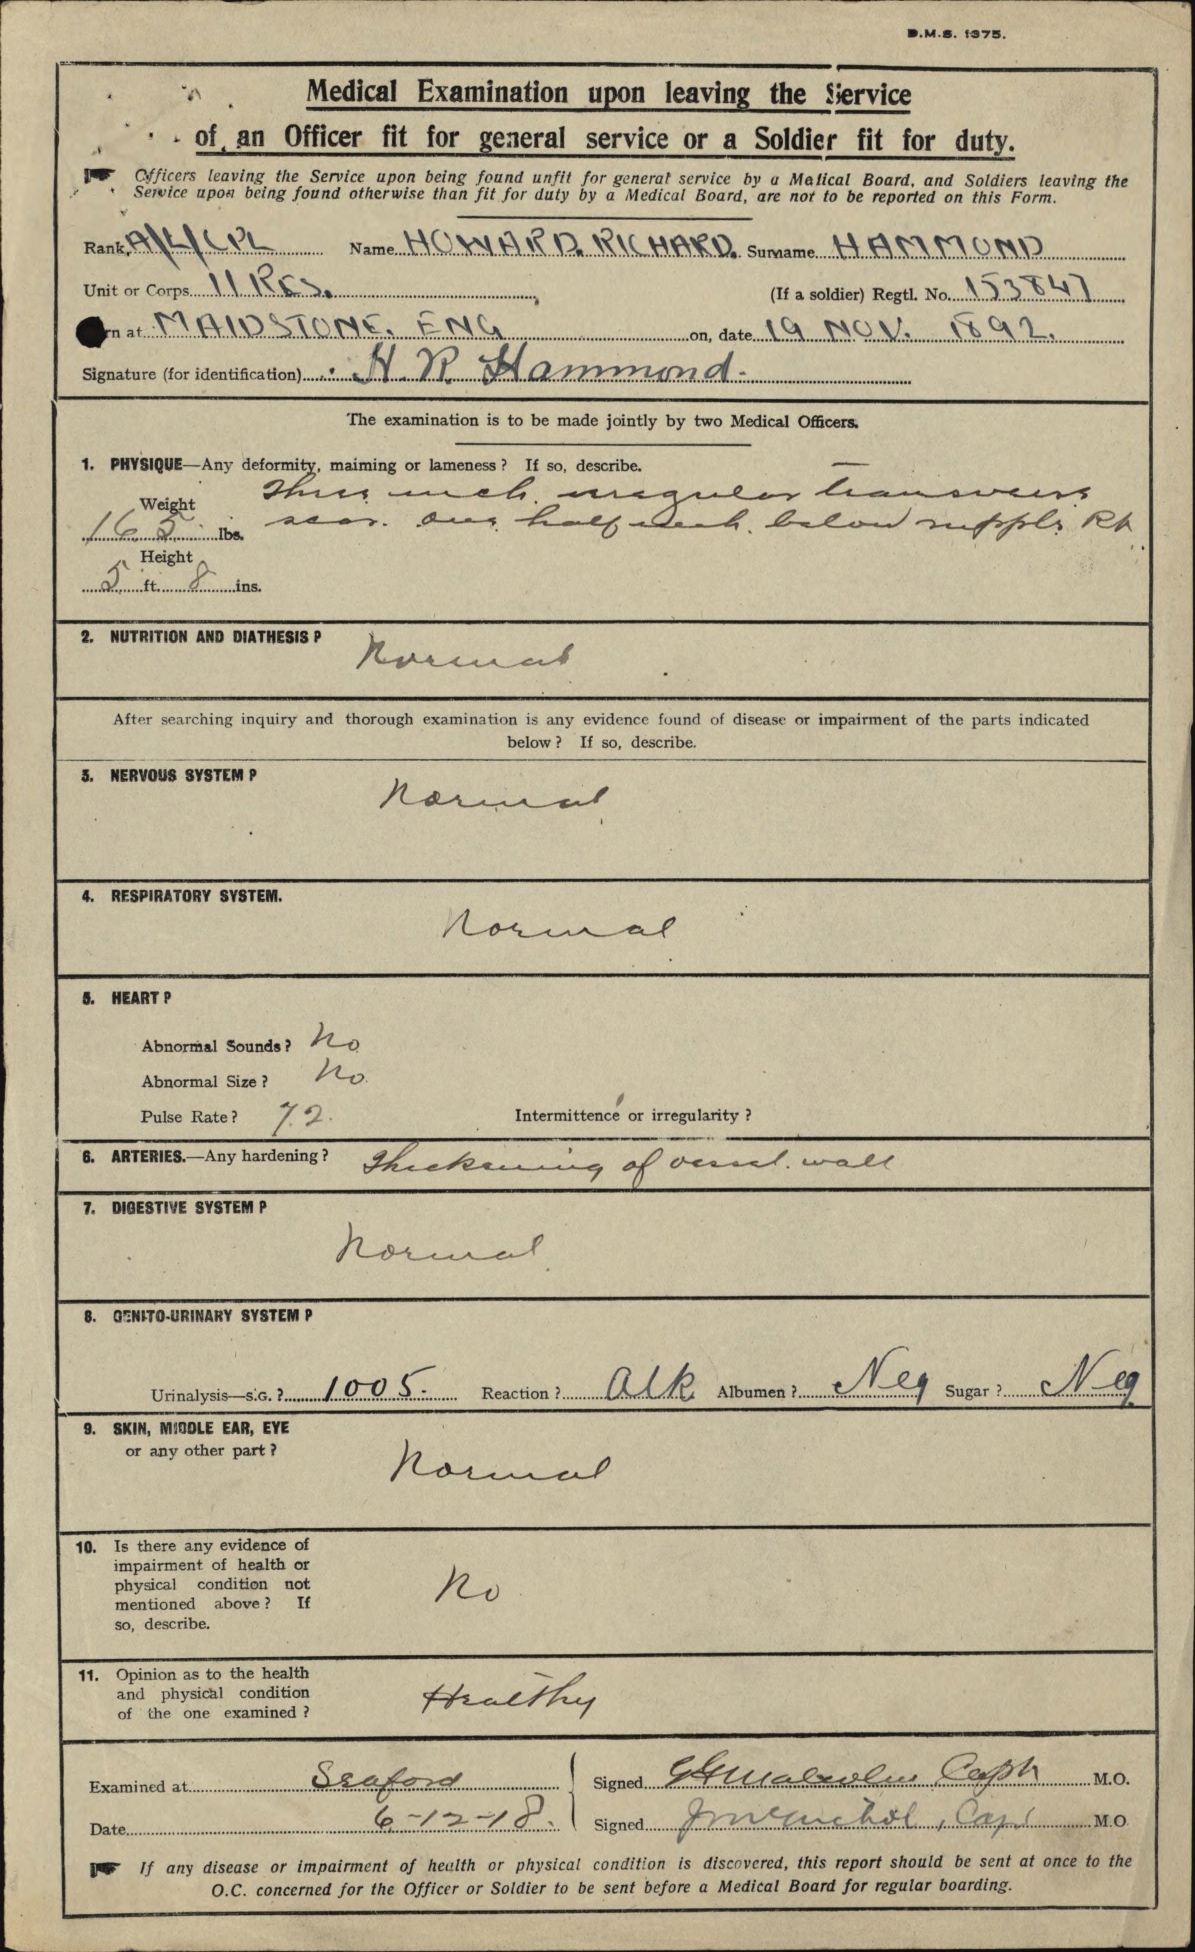 D.M.S. 1375.
Medical Examination upon leaving the Service
of an Officer fit for general service or a Soldier fit for duty.
Officers leaving the Service upon being found unfit for general service by a Medical Board, and Soldiers leaving the
Service upon being found otherwise than fit for duty by a Medical Board, are not to be reported on this Form.
Rank A/L/CPL Name HOWARD. RICHARD. Surname HAMMOND
Unit or Corps 11 RES. (If a soldier) Regtl. No. 153847
rn at MAIDSTONE. ENG on, date 19 NOV. 1892.
Signature (for identification) H. R. Hammond.
The examination is to be made jointly by two Medical Officers.
1. PHYSIQUE—Any deformity, maiming or lameness? If so, describe.
Three inch irregular transverse
Weight
scar. one half inch below nipple Rt.
165 lbs.
Height
5 ft. 8 ins.
2. NUTRITION AND DIATHESIS?
Normal
After searching inquiry and thorough examination is any evidence found of disease or impairment of the parts indicated
below? If so, describe.
3. NERVOUS SYSTEM?
Normal
4. RESPIRATORY SYSTEM.
Normal
5. HEART?
Abnormal Sounds? No
Abnormal Size? No
Pulse Rate? 72. Intermittence or irregularity?
6. ARTERIES.—Any hardening? Thickening of vessel wall
7. DIGESTIVE SYSTEM?
Normal
8. GENITO-URINARY SYSTEM?
Urinalysis—S.G.? 1005. Reaction? Alk Albumen? Neg Sugar? Neg
9. SKIN, MIDDLE EAR, EYE
or any other part?
Normal
10. Is there any evidence of
impairment of health or
physical condition not
mentioned above? If
so, describe.
No
11. Opinion as to the health
and physical condition
of the one examined?
Healthy
Examined at Seaford Signed Malcolm Capt M.O.
Date 6-12-18. Signed , Capt M.O.
If any disease or impairment of health or physical condition is discovered, this report should be sent at once to the
O.C. concerned for the Officer or Soldier to be sent before a Medical Board for regular boarding.